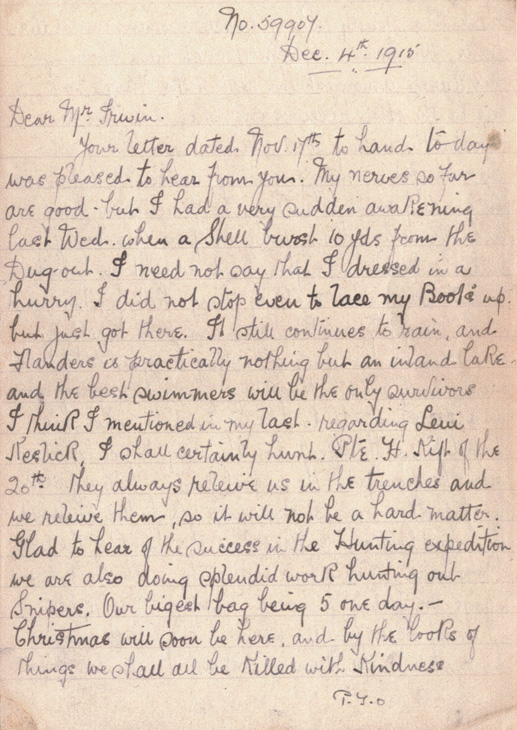 No. 59907.
Dec. 4th. 1915
Dear Mr Irwin.
Your letter dated Nov. 17th to hand to day
was pleased to hear from you. My nerves so far
are good - but I had a very sudden awakening
last Wed. when a Shell burst 10 yds from the
Dug-out. I need not say that I dressed in a
hurry. I did not stop even to lace my Boots up.
but just got there. It still continues to rain, and
Flanders is practically nothing but an inland lake
and the best swimmers will be the only survivors
I think I mentioned in my last. regarding Levi
I shall certainly hunt. Pte. H. of the
20th They always releive us in the trenches and
we releive them, so it will not be a hard matter.
Glad to hear of the success in the Hunting expedition
we are also doing splendid work hunting out
Snipers. Our bigest bag being 5 one day. -
Christmas will soon be here, and by the looks of
things we shall all be Killed with Kindness
P.T.O